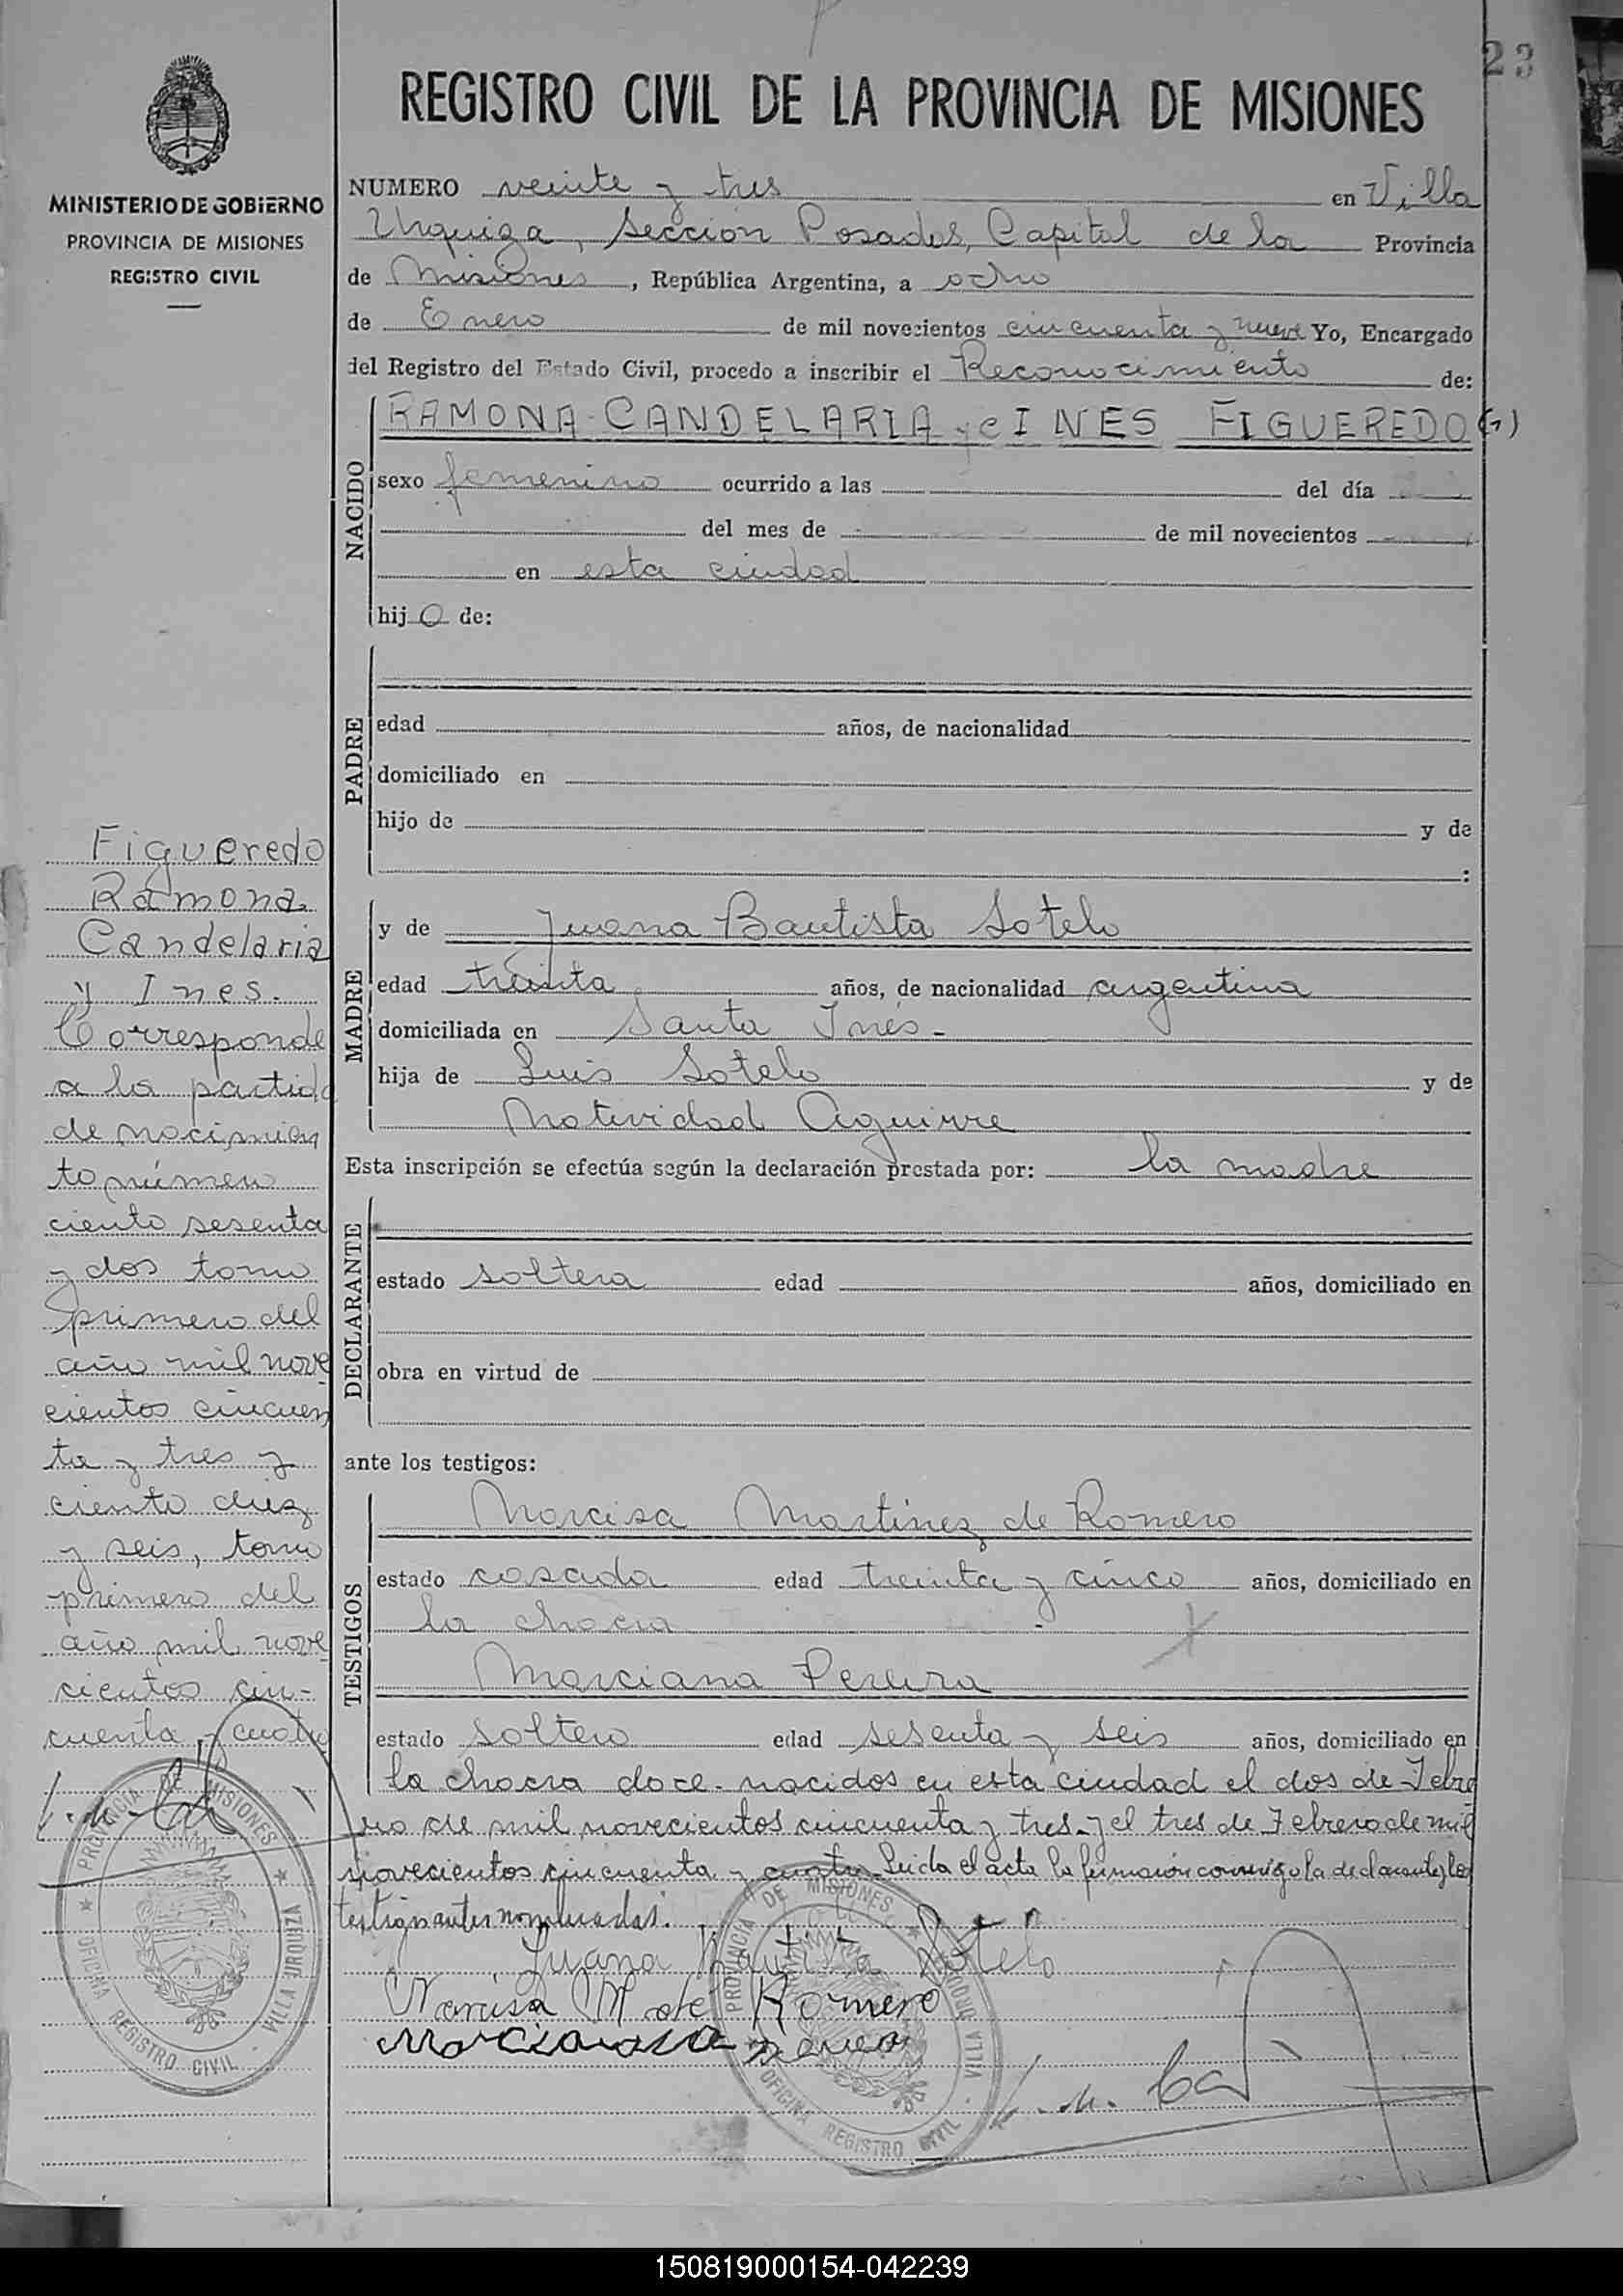 23
REGISTRO CIVIL DE LA PROVINCIA DE MISIONES
MINISTERIO DE GOBIERNO
PROVINCIA DE MISIONES
REGISTRO CIVIL
NUMERO veinte y tres en Villa
Urquiza, Sección Posadas, Capital de la Provincia
de Misiones, República Argentina, a ocho
de Enero de mil novecientos cincuenta y nueve Yo, Encargado
del Registro del Estado Civil, procedo a inscribir el Reconocimiento de:
NACIDO
RAMONA CANDELARIA y e INES FIGUEREDO
sexo femenino ocurrido a las del día
del mes de de mil novecientos
en esta ciudad
hijo de:
PADRE
edad años, de nacionalidad
domiciliado en
hijo de y de
:
MADRE
y de Juana Bautista Sotelo
edad treinta años, de nacionalidad argentina
domiciliada en Santa Inés-
hija de Luis Sotelo y de
Natividad Aguirre
Esta inscripción se efectúa según la declaración prestada por: la madre
DECLARANTE
estado soltera edad años, domiciliado en
obra en virtud de
ante los testigos:
TESTIGOS
Narcisa Martinez de Romero
estado casada edad treinta y cinco años, domiciliado en
la chacra
Marciana Pereira
estado soltero edad sesenta y seis años, domiciliado en
la chacra doce. nacidos en esta ciudad el dos de Febre
ro de mil novecientos cincuenta y tres y el tres de Febrero de mil
novecientos cincuenta y cuatro Leida el acta la firmaron conmigo la declarante y los
testigos antes nombrados.
Juana Bautista Sotelo
Narcisa M. de Romero
Marciana
Figueredo
Ramona
Candelaria
y Ines.
Corresponde
a la partida
de nacimien
to número
ciento sesenta
y dos tomo
primero del
año mil nove
cientos cincuen
ta y tres y
ciento diez
y seis, tomo
primero del
año mil nove
cientos cin-
cuenta y cuatro
PROVINCIA DE MISIONES
OFICINA REGISTRO CIVIL - VILLA URQUIZA
PROVINCIA DE MISIONES
OFICINA REGISTRO CIVIL - VILLA URQUIZA
150819000154-042239